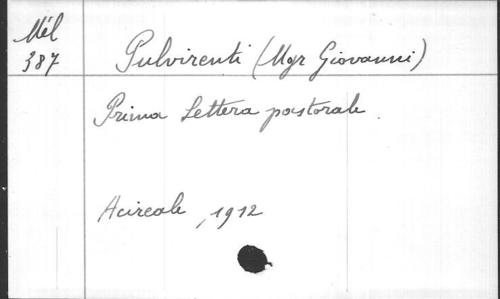 Mél
387
Pulvirenti (Mgr Giovanni)
Prima Lettera pastorale.
Acireale, 1912